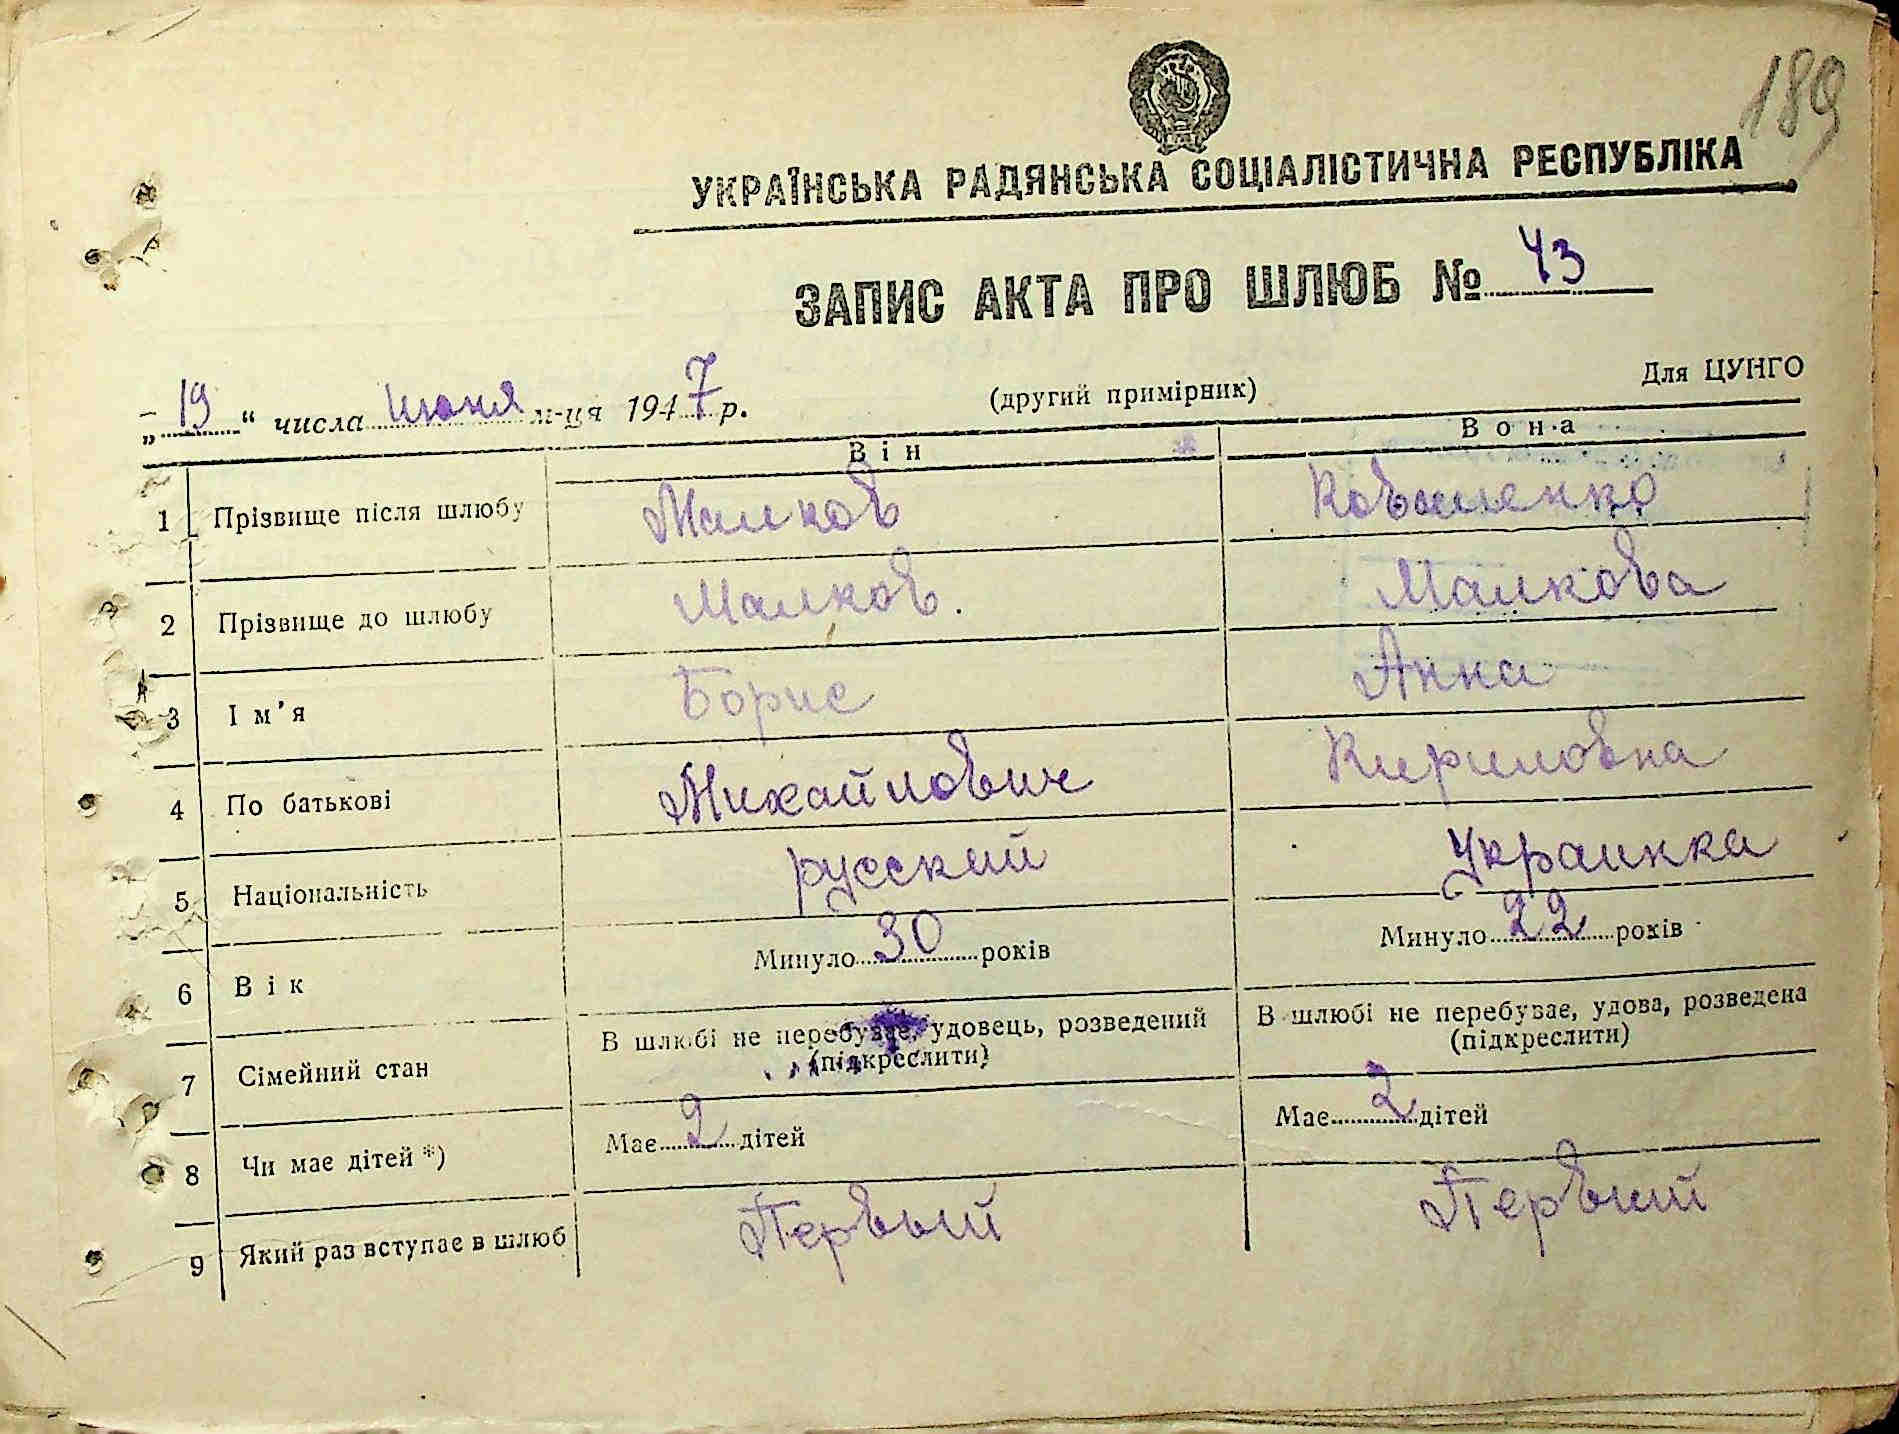 189
УКРАЇНСЬКА РАДЯНСЬКА СОЦІАЛІСТИЧНА РЕСПУБЛІКА
ЗАПИС АКТА ПРО ШЛЮБ № 43
„19“ числа июня м-ця 1947 р. (другий примірник) Для ЦУНГО
Він Вона
1 Прізвище після шлюбу Малков
2 Прізвище до шлюбу Малков. Малкова
3 Ім’я Борис Анна
4 По батькові Михайлович Кириловна
5 Національність русский Украинка
6 Вік Минуло 30 років Минуло 22 років
7 Сімейний стан В шлюбі не перебуває, удовець, розведений (підкреслити) В шлюбі не перебуває, удова, розведена (підкреслити)
8 Чи має дітей *) Має 2 дітей Має 2 дітей
9 Який раз вступає в шлюб Первый Первый